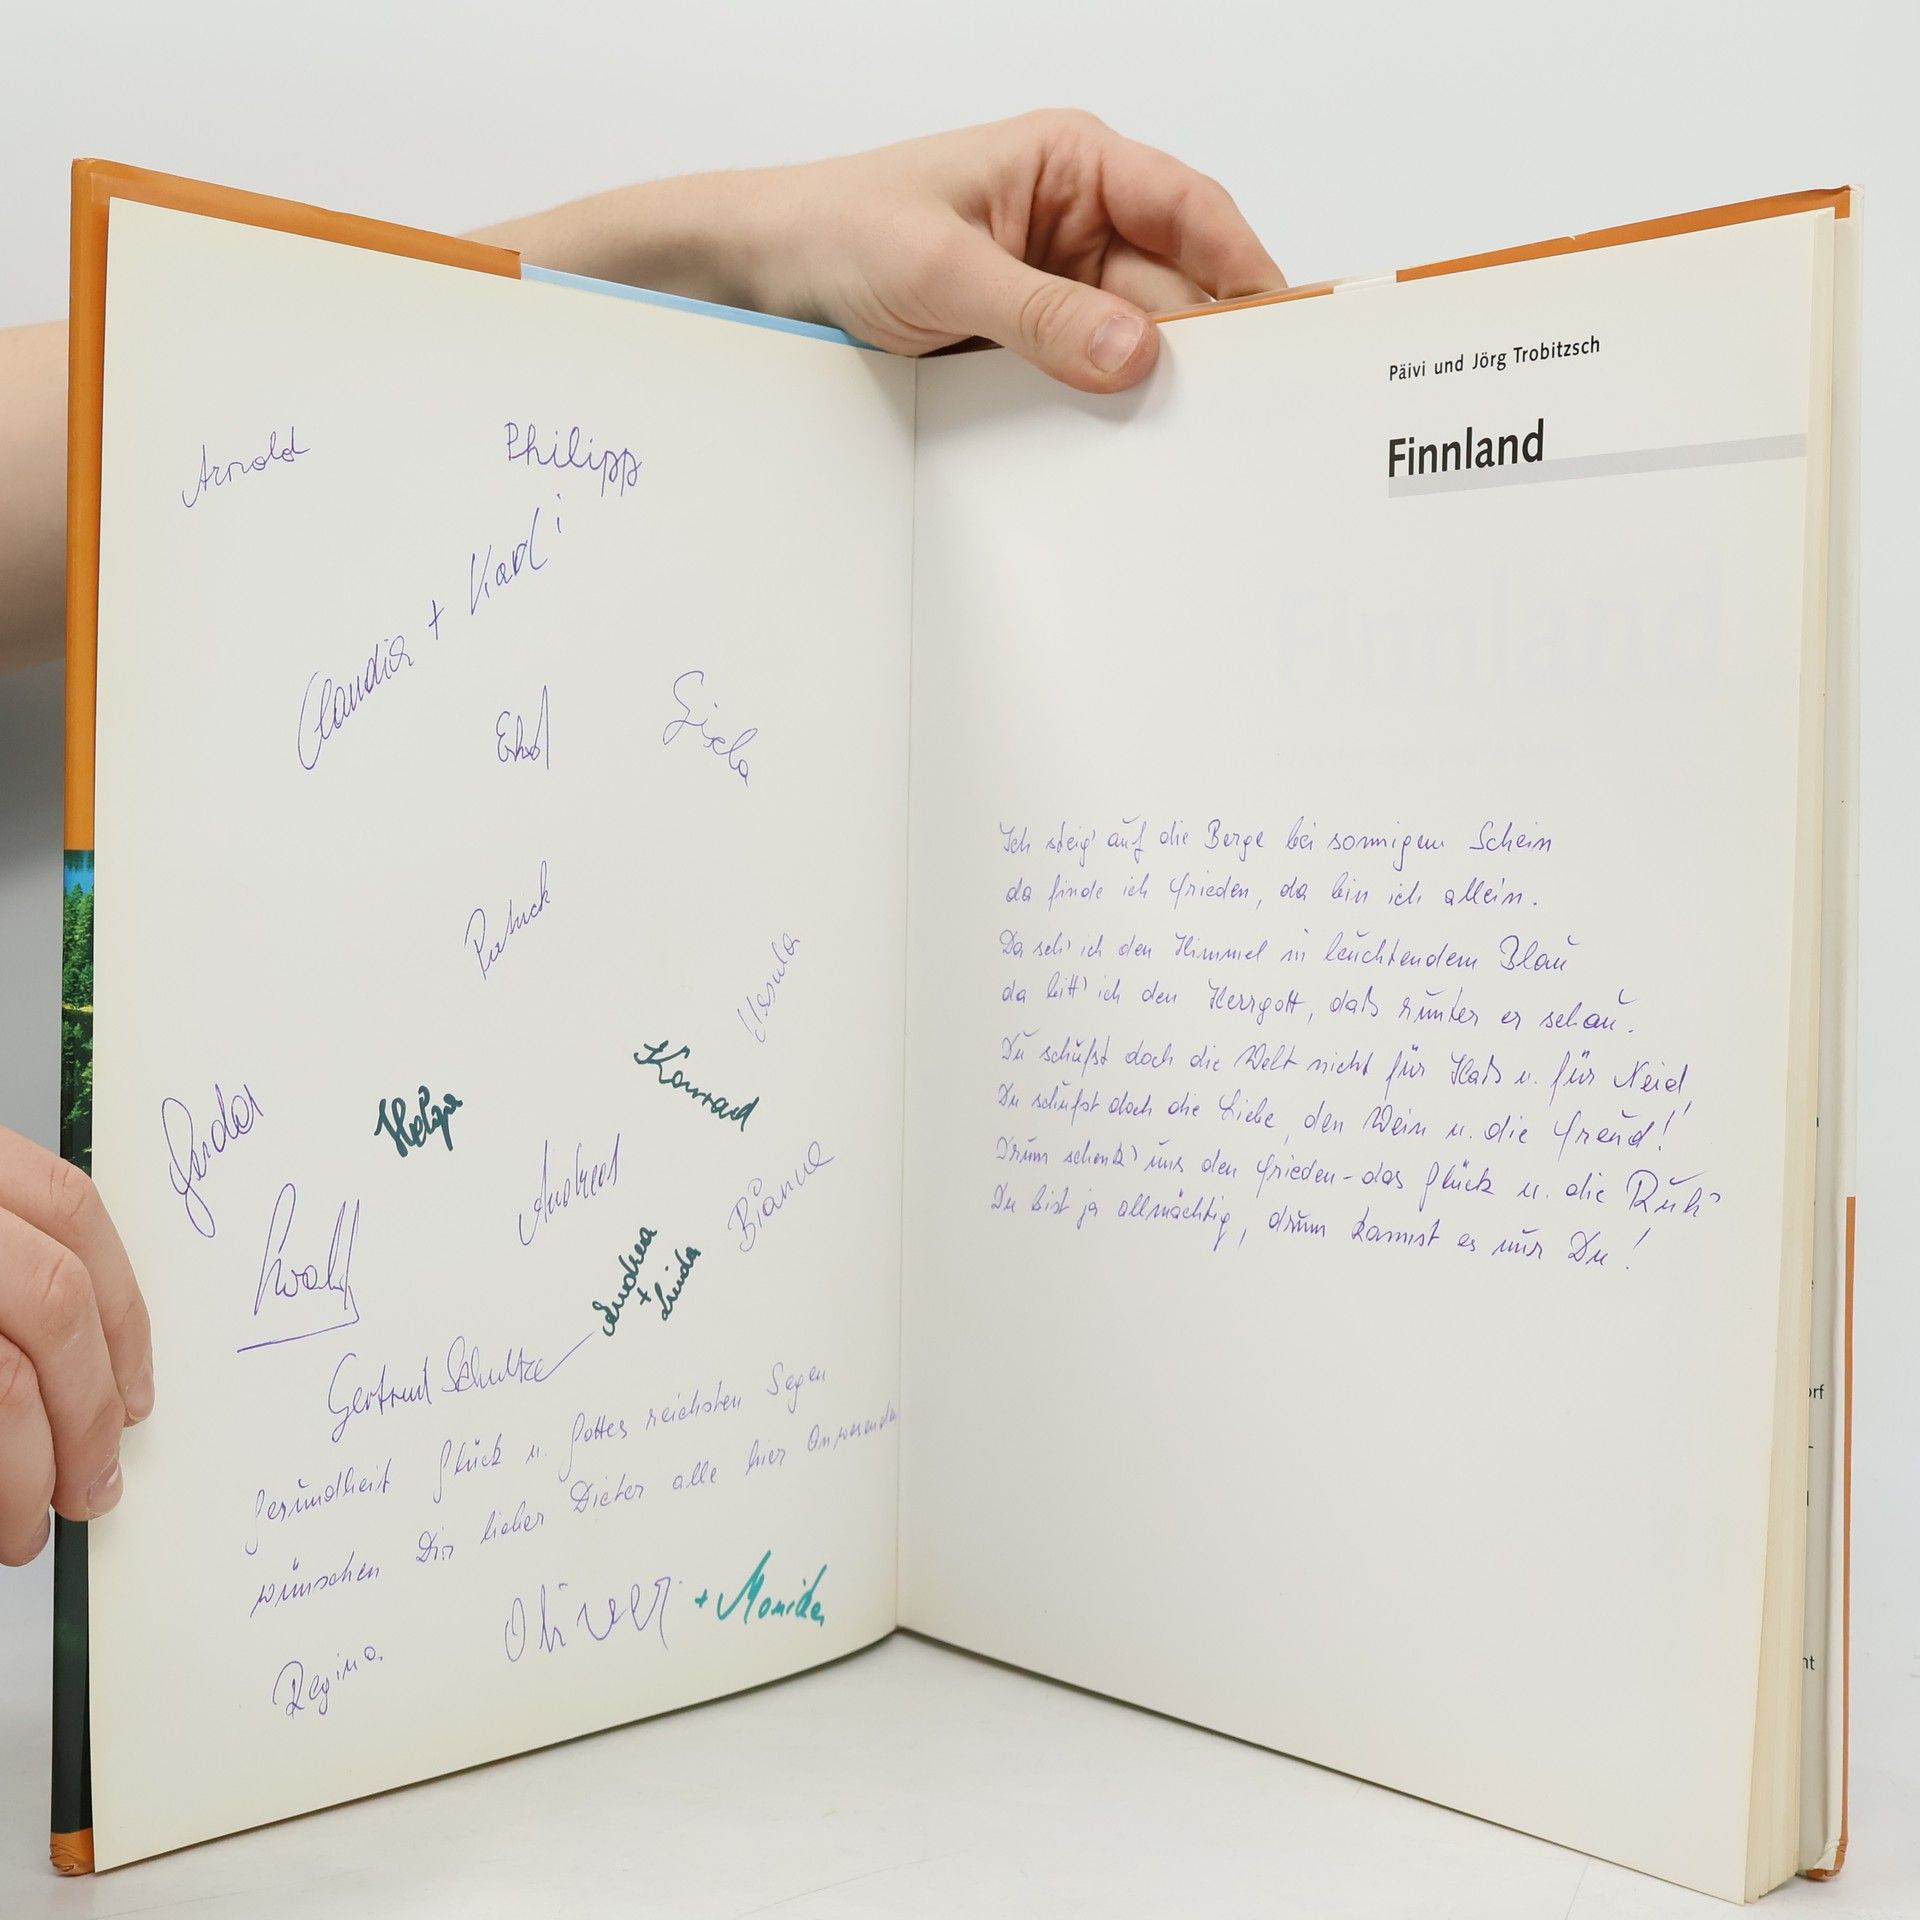 Arnold
Philipp
Claudia + Karl i
Gisela
Patrick
Ursula
Konrad
Gerda
Helga
Andreas
Bianca
Ewald
Andrea
+
Linda
Gertrud Schultze
Gesundheit Glück u. Gottes reichsten Segen
wünschen Dir lieber Dieter alle hier Anwesenden
Oliver + Monika
Regina
Päivi und Jörg Trobitzsch
Finnland
Ich steig' auf die Berge bei sonnigem Schein
da finde ich Frieden, da bin ich allein.
Da seh' ich den Himmel in leuchtendem Blau
da bitt' ich den Herrgott, daß runter er schau.
Du schufst doch die Welt nicht für Haß u. für Neid,
Du schufst doch die Liebe, den Wein u. die Freud!
Drum schenk' uns den Frieden - das Glück u. die Ruh'
Du bist ja allmächtig, drum kannst es nur Du!